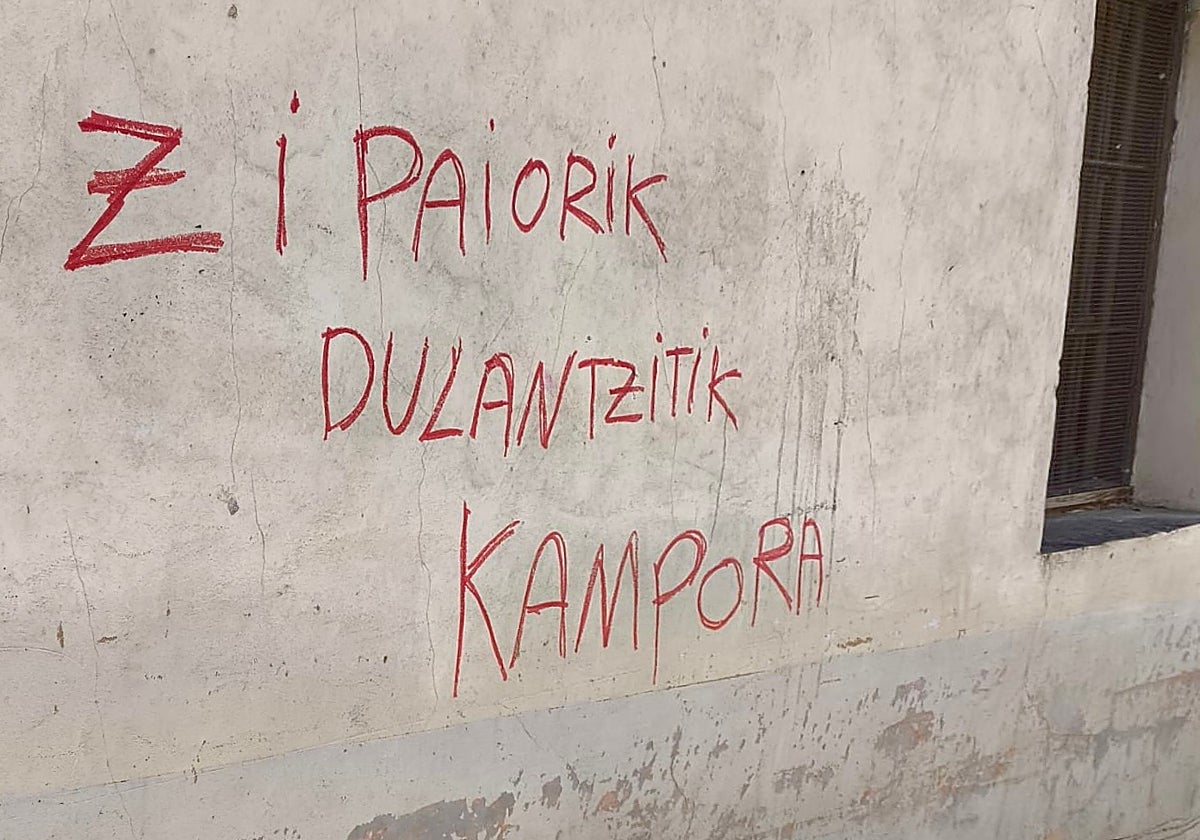 Z i PAiORiK
DULANTZiTiK
KAMPORA